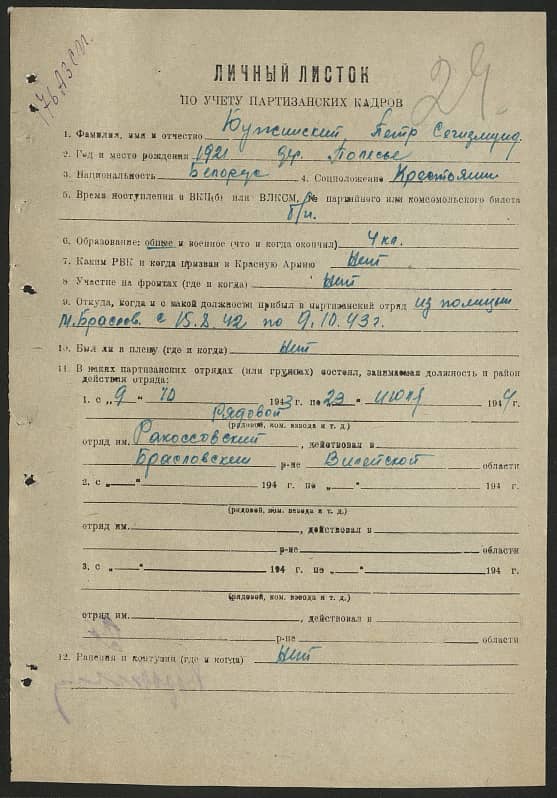 24.
ЛИЧНЫЙ ЛИСТОК
ПО УЧЕТУ ПАРТИЗАНСКИХ КАДРОВ
1. Фамилия, имя и отчество Петр Сегизмунд.
2. Год и место рождения 1921 дер. Полесье
3. Национальность Белорус 4. Соцположение Крестьянин
5. Время поступления в ВКП(б) или ВЛКСМ, № партийного или комсомольского билета
б/п.
6. Образование: общее и военное (что и когда окончил) 4 кл.
7. Каким РВК и когда призван в Красную Армию Нет
8. Участие на фронтах (где и когда) Нет
9. Откуда, когда и с какой должности прибыл в партизанский отряд из полиции
м. Браслов. с 15.8.42 по 9.10.43 г.
10. Был ли в плену (где и когда) Нет
11. В каких партизанских отрядах (или группах) состоял, занимаемая должность и район
действия отряда:
1. с „9 “ 10 1943 г. по 23 июля 1944 г.
Рядовой
(рядовой, ком. взвода и т. д.)
отряд им. Ракоссовский , действовал в
Брасловский р-не Вилейской области
2. с „ “ 194 г. по „ “ 194 г.
(рядовой, ком. взвода и т. д.)
отряд им. , действовал в
р-не области
3. с „ “ 194 г. по „ “ 194 г.
(рядовой, ком. взвода и т. д.)
отряд им. , действовал в
р-не области
12. Ранения и контузии (где и когда) Нет